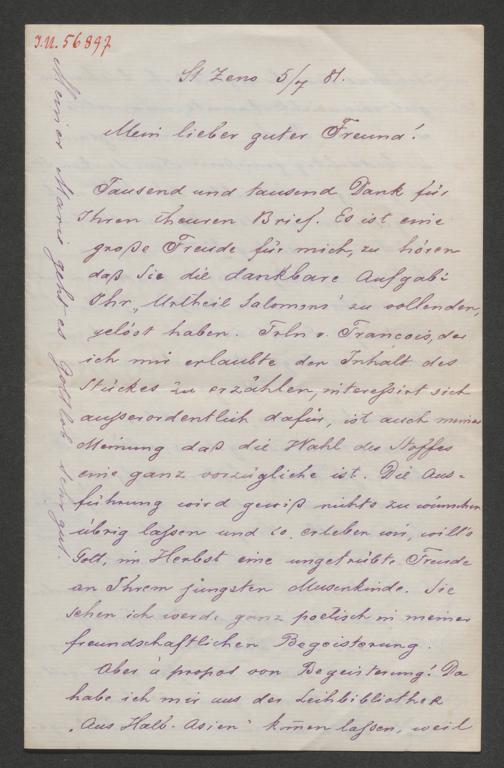 J.N. 56897
St Zeno 5/7 81.
Mein lieber guter Freund!
Tausend und tausend Dank für
Ihren theuren Brief. Es ist eine
große Freude für mich, zu hören
daß Sie die dankbare Aufgabe
Ihr „Urtheil Salomons" zu vollenden,
gelöst haben. Frln v. François, der
ich mir erlaubte den Inhalt des
Stückes zu erzählen, interessirt sich
ausserordentlich dafür, ist auch meiner
Meinung daß die Wahl des Stoffes
eine ganz vorzügliche ist. Die Aus-
führung wird gewiß nichts zu wünschen
übrig lassen und so erleben wir, will's
Gott, im Herbst eine ungetrübte Freude
an Ihrem jüngsten Musenkinde. Sie
sehen ich werde ganz poetisch in meiner
freundschaftlichen Begeisterung.
Aber à propos von Begeisterung! Da
habe ich mir aus der Leihbibliothek
„Aus Halb-Asien" kom̄en lassen, weil
Meiner Marie geht es Gottlob sehr gut.